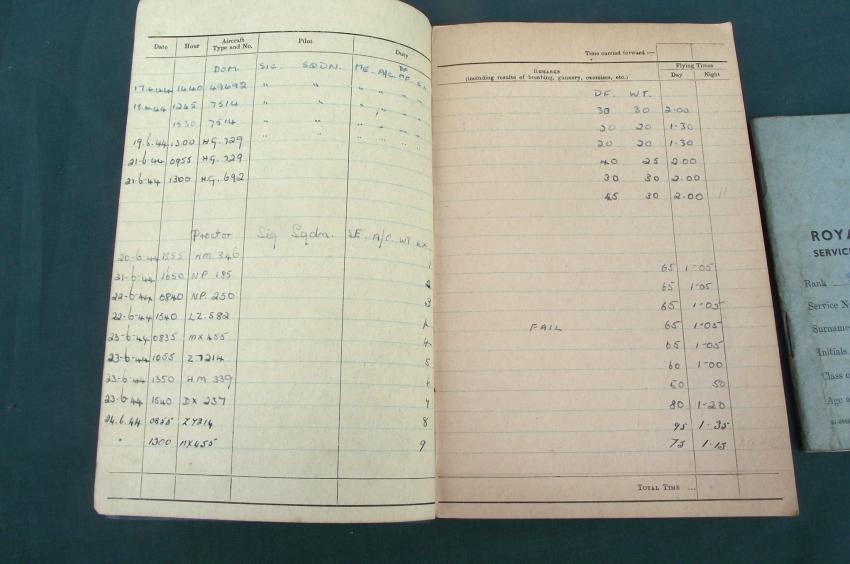 Date Hour Aircraft Type and No. Pilot Duty
DOM. SIG. SQDN. ME. A/C. DF. MF. EX
17.6.44 1440 49692 " " " " " "
18.6.44 1245 7514 " " " " " "
1530 7514 " " " " " "
19.6.44 1300 HG. 729 " " " " " "
21-6-44 0955 HG. 729
21.6.44 1300 HG. 692
Proctor Sig Sqdn. SE. A/C WT EX
20-6-44 1555 HM 346 1
21-6-44 1650 NP. 185 2
22-6-44 0840 NP. 250 3
22-6-44 1540 LZ. 582 4
23-6-44 0835 MX 455 4
23-6-44 1055 Z7214 5
23-6-44 1350 HM 339 6
23.6.44 1640 DX 237 7
24.6.44 0855 Z7214 8
" 1300 MX455 9
Time carried forward :—
Remarks
(including results of bombing, gunnery, exercises, etc.)
Flying Times
Day Night
DF. WT.
30 30 2.00
20 20 1.30
20 20 1.30
40 25 2.00
30 30 2.00
45 30 2.00
65 1-05
65 1.05
65 1-05
FAIL 65 1-05
65 1-05
60 1-00
50 50
80 1-20
95 1-35
75 1.15
Total Time ...
ROYA
SERVIC
Rank
Service N
Surname
Initials
Class o
Age a